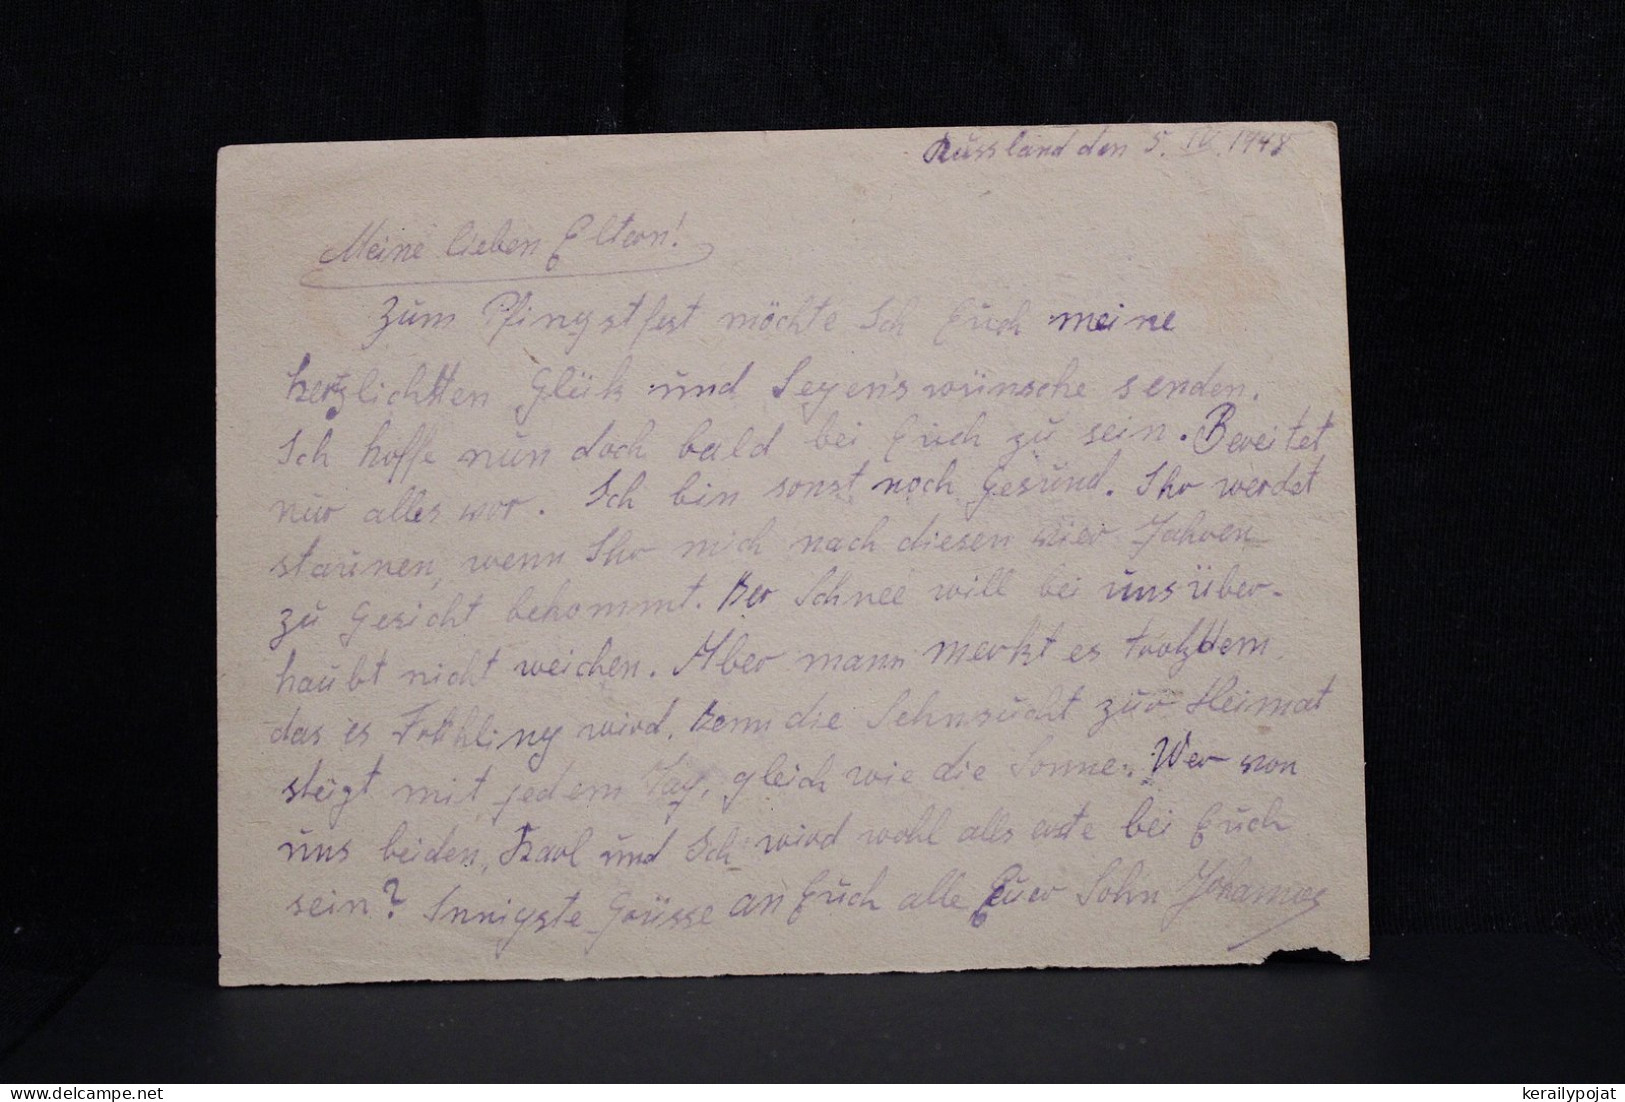 Russland den 5. IV. 1948
Meine lieben Eltern!
Zum Pfingstfest möchte Ich Euch meine
herzlichsten Glück und Segenswünsche senden.
Ich hoffe nun doch bald bei Euch zu sein. Bereitet
nur alles vor. Ich bin sonst noch Gesund. Ihr werdet
staunen, wenn Ihr mich nach diesen vier Jahren
zu Gesicht bekommt. Der Schnee will bei uns über-
haubt nicht weichen. Aber mann merkt es trotzdem
das es Frühling wird, denn die Sehnsucht zur Heimat
steigt mit jedem Tag, gleich wie die Sonne. Wer von
uns beiden, Karl und Ich wird wohl alls erste bei Euch
sein? Innigste Grüsse an Euch alle Euer Sohn Johannes
kerailypojat